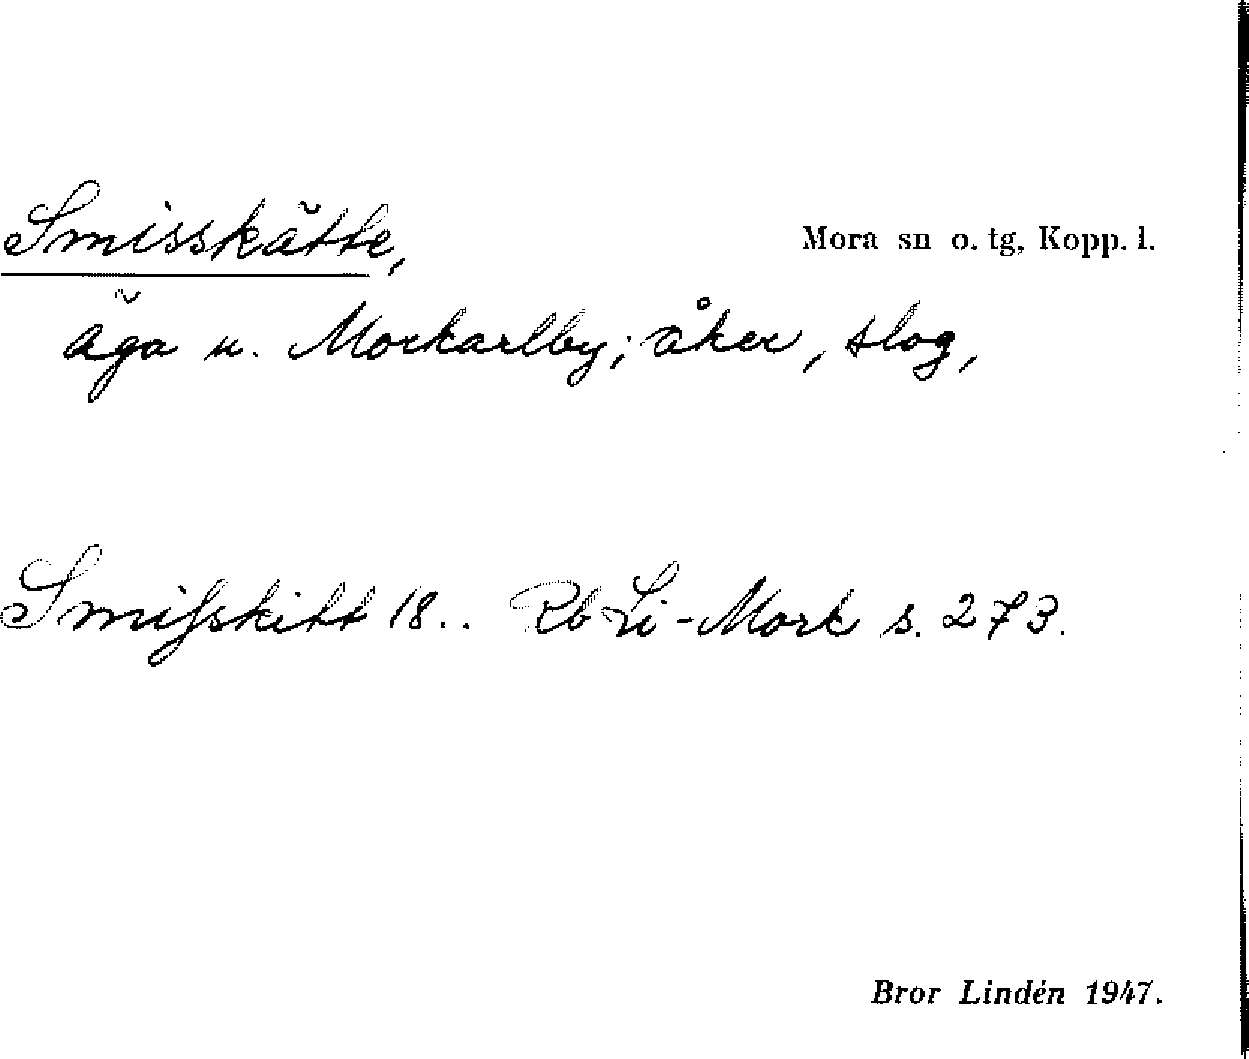 Smisskätte,
Mora sn o. tg, Kopp. l.
äga u. Morkarlby; åker, slog,
Smisskitt 18.. Rb Li-Mork s. 273.
Bror Lindén 1947.